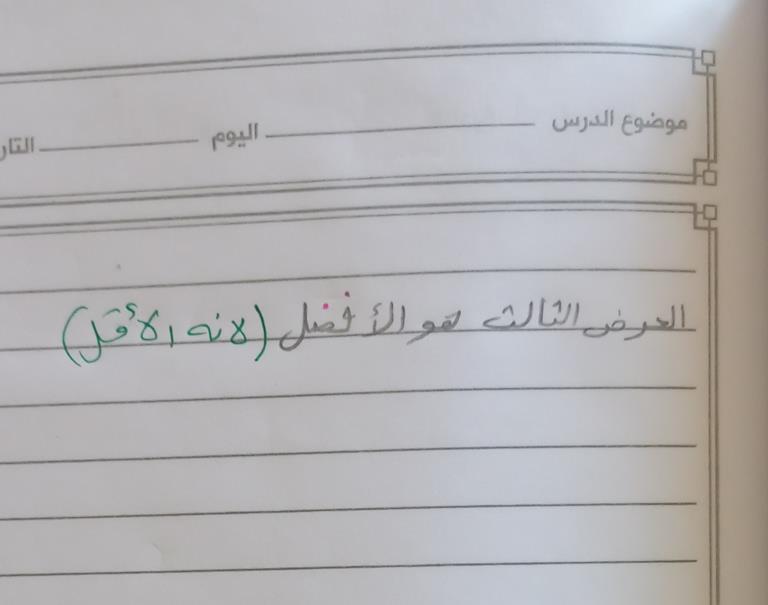 موضوع الدرس اليوم التار
العرض الثالث هو الأفضل (لانه الأقل)